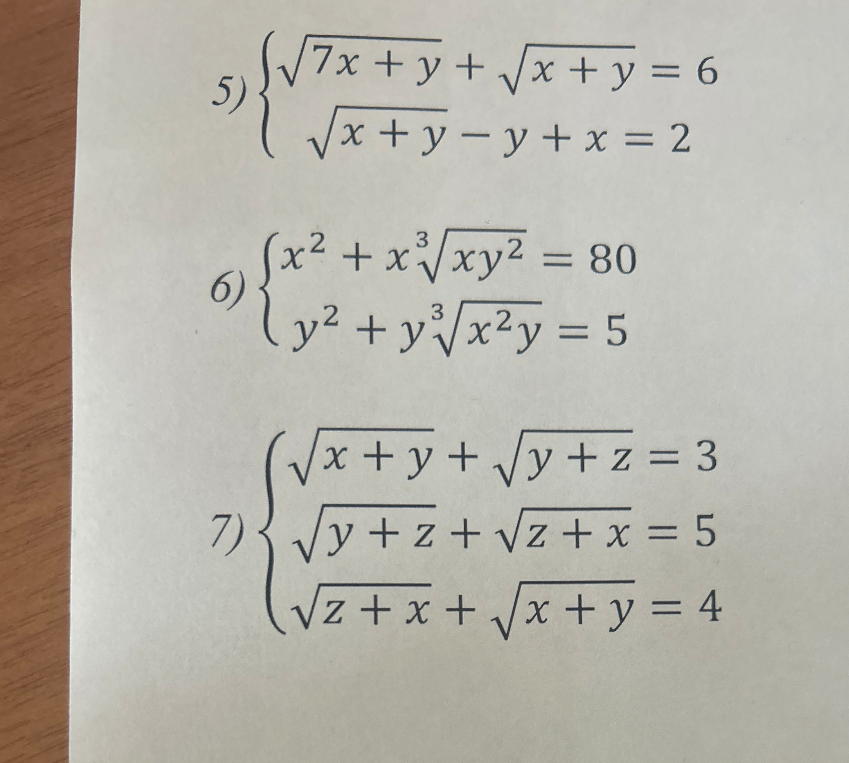 5) { √(7x + y) + √(x + y) = 6
√(x + y) − y + x = 2
6) { x² + x∛(xy²) = 80
y² + y∛(x²y) = 5
7) { √(x + y) + √(y + z) = 3
√(y + z) + √(z + x) = 5
√(z + x) + √(x + y) = 4